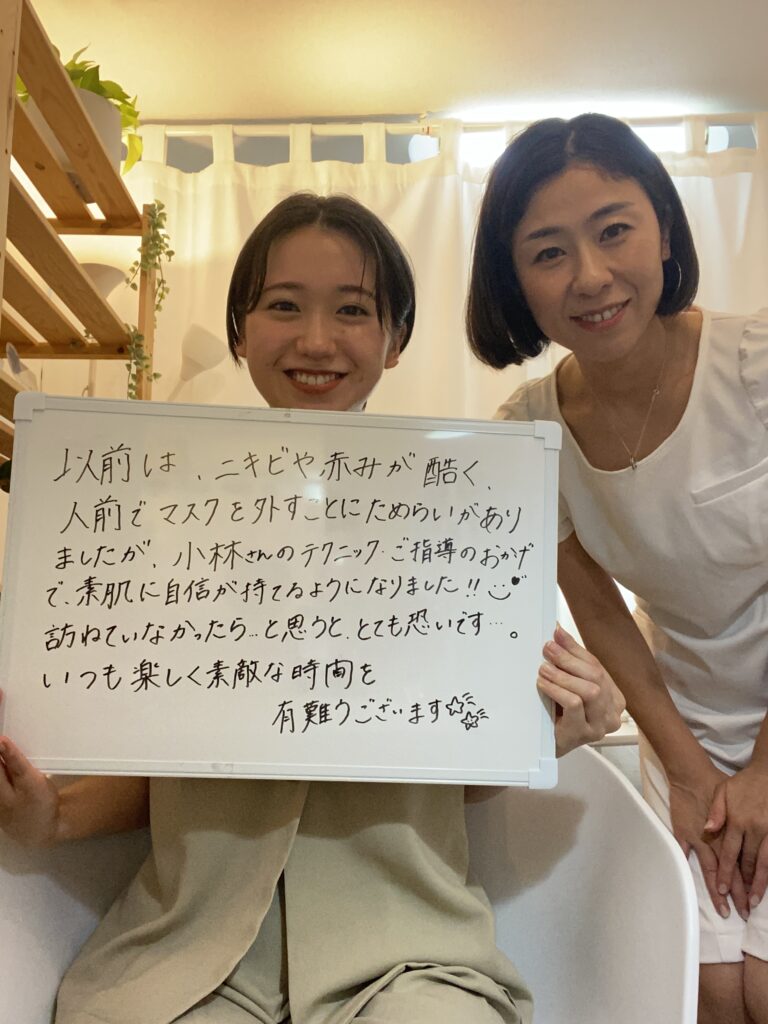 以前は、ニキビや赤みが酷く、
人前でマスクを外すことにためらいがあり
ましたが、小林さんのテクニック・ご指導のおかげ
で、素肌に自信が持てるようになりました!!
訪ねていなかったら…と思うと、とても恐いです…。
いつも楽しく素敵な時間を
有難うございます